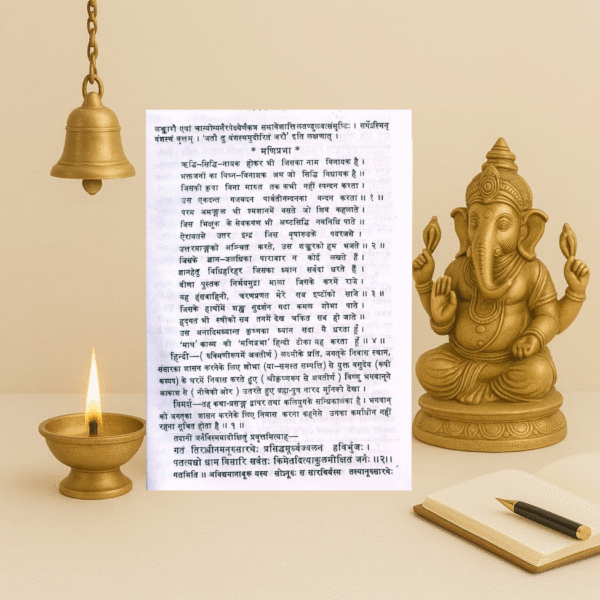 लङ्कारौ एषां चान्योन्यनैरपेक्ष्येणैकत्र समावेशात्तिलतण्डुलवत्संसृष्टिः । सर्गेऽस्मिन्
वंशस्थं वृत्तम् । 'जतौ तु वंशस्थमुदीरितं जरौ' इति लक्षणात् ।
* मणिप्रभा *
ऋद्धि-सिद्धि-नायक होकर भी जिसका नाम विनायक है ।
भक्तजनों का विघ्न-विनाशक अथ जो सिद्धि विधायक है ॥
जिसकी कृपा विना मारुत तक कभी नहीं स्पन्दन करता ।
उस एकदन्त गजवदन पार्वतीनन्दनका वन्दन करता ॥ १ ॥
परम अमङ्गल भी श्मशानमें वसते जो शिव कहलाते ।
जिस भिक्षुक के सेवकगण भी अष्टसिद्धि नवनिधि पाते ॥
ऐरावतसे उतर इन्द्र जिस वृषारूढके पदरजसे ।
उत्तरमाङ्गको अञ्चित करते, उस शङ्करको हम भजते ॥ २ ॥
जिसके ज्ञान-जलधिका पारावार न कोई लखते हैं ।
ज्ञानहेतु विधिहरिहर जिसका ध्यान सर्वदा धरते हैं ॥
वीणा पुस्तक निर्भयमुद्रा माला जिसके करमें राजे ।
वह हंसवाहिनी, चरणप्रणत मेरे सब इष्टोंको साजे ॥ ३ ॥
जिसके हाथोंमें शङ्ख सुदर्शन गदा कमल शोभा पाते ।
हृद्गत भी स्त्रीको सब तनमें देख चकित सब हो जाते ॥
उस अनादिमध्यान्त कृष्णका ध्यान सदा मैं धरता हूँ ।
'माघ' काव्य की 'मणिप्रभा' हिन्दी टीका यह करता हूँ ॥ ४ ॥
हिन्दी—( रुक्मिणीरूपमें अवतीर्ण ) लक्ष्मीके प्रति, जगत्के निवास स्थान,
संसारका शासन करनेके लिए शोभा (या-समस्त सम्पत्ति) से युक्त वसुदेव (रूपी
कश्यप) के घरमें निवास करते हुए ( श्रीकृष्णरूप से अवतीर्ण ) विष्णु भगवान्ने
आकाश से ( नीचेकी ओर ) उतरते हुए ब्रह्मा-पुत्र नारद मुनिको देखा ।
विमर्श—यह कथा-प्रसङ्ग द्वापर तथा कलियुगके सन्धिकालका है । भगवान्
को जगत्का शासन करनेके लिए निवास करना कहनेसे उनका कर्माधीन नहीं
रहना सूचित होता है ॥ १ ॥
तदानीं जनैर्विस्मयादीक्षितुं प्रवृत्तमित्याह—
गतं तिरश्चीनमनूरुसारथेः प्रसिद्धमूर्ध्वज्वलनं हविर्भुजः ।
पतत्यधो धाम विसारि सर्वतः किमेतदित्याकुलमीक्षितं जनैः ॥२॥
गतमिति ॥ अविद्यमानावूरू यस्य सोऽनूरुः स सारथिर्यस्य तस्यानूरुसारथेः